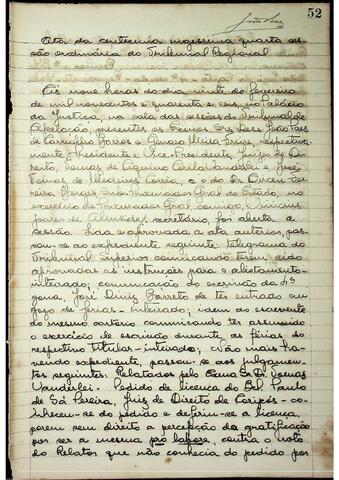 52
João Paes
Ata da centesima vigessima quarta ses-
são ordinária do Tribunal Regional
Ás nove horas do dia vinte de fevereiro
de mil novecentos e quarenta e seis, no Palácio
da Justiça, na sala das sessões do Tribunal de
Apelação, presentes os Exmos Srs. Des. João Paes
de Carvalho Barros e Genaro Freire, respectiva-
mente, Presidente e Vice-Presidente, Juizes de Di-
reito, Tomas de Aquino Wanderlei e José
de Correia, e o dr.
Sub-Procurador Geral do Estado, no
exercício de Procurador Geral, comigo,
de Almeida, secretário, foi aberta a
sessão. Lida e aprovada a ata anterior, pas-
sou-se ao expediente seguinte: telegrama do
Tribunal Superior comunicando terem sido
aprovadas as instruções para o alistamento-
inteirado; comunicação do escrivão da
zona, José Diniz Barreto de ter entrado em
gozo de férias - inteirado; idem do escrevente
do mesmo cartorio comunicando ter assumido
o exercício de escrivão durante as férias do
respectivo titular - inteirado. Não mais ha-
vendo expediente, passou-se aos julgamen-
tos seguintes: Relatados pelo Exmo Sr. Dr. Tomas
Wanderlei. Pedido de licença do Bel. Paulo
de Sá Pereira, Juiz de Direito de - co-
nheceu-se do pedido e deferiu-se a licença,
porem sem direito a percepção da gratificação
por ser a mesma pro labore, contra o voto
do Relator que não conhecia do pedido por